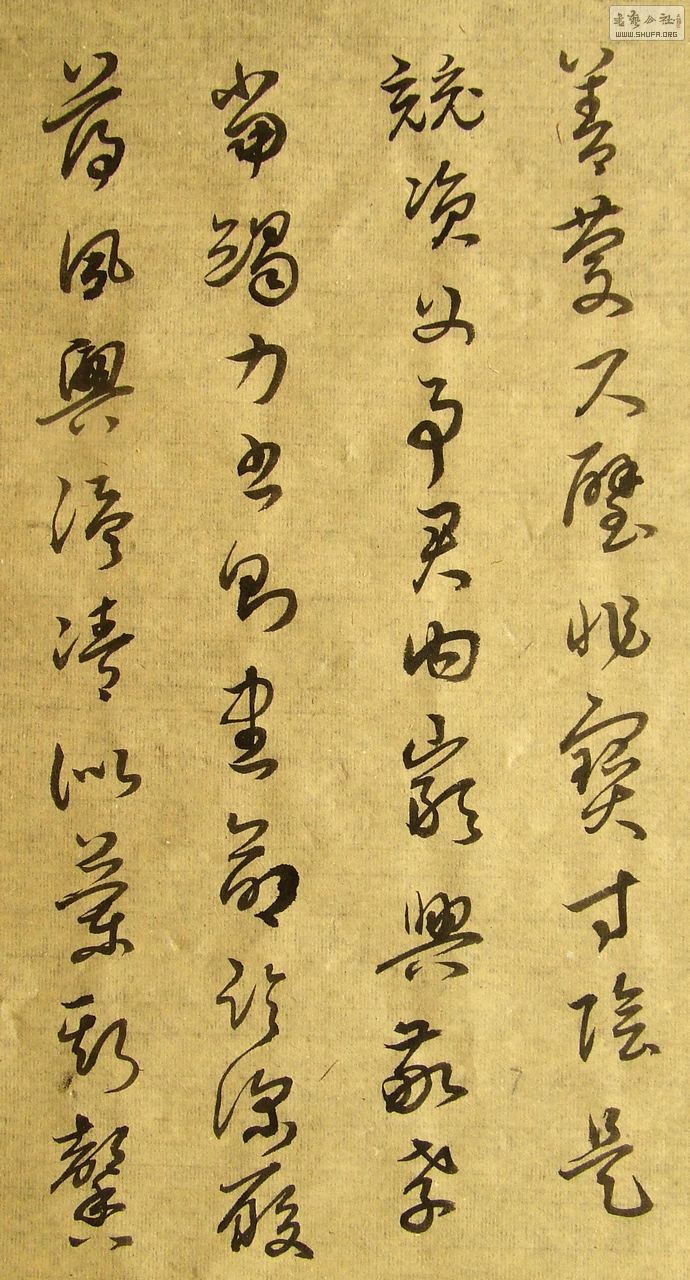 善慶尺璧非寶寸陰是
競資父事君曰嚴與敬孝
當竭力忠則盡命臨深履
薄夙興溫凊似蘭斯馨
書藝公社
WWW.SHUFA.ORG